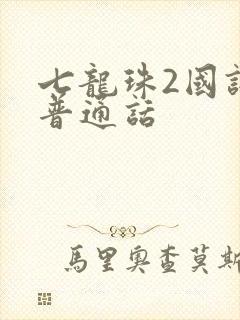 七龍珠2國語
普通話
馬里奧查莫斯